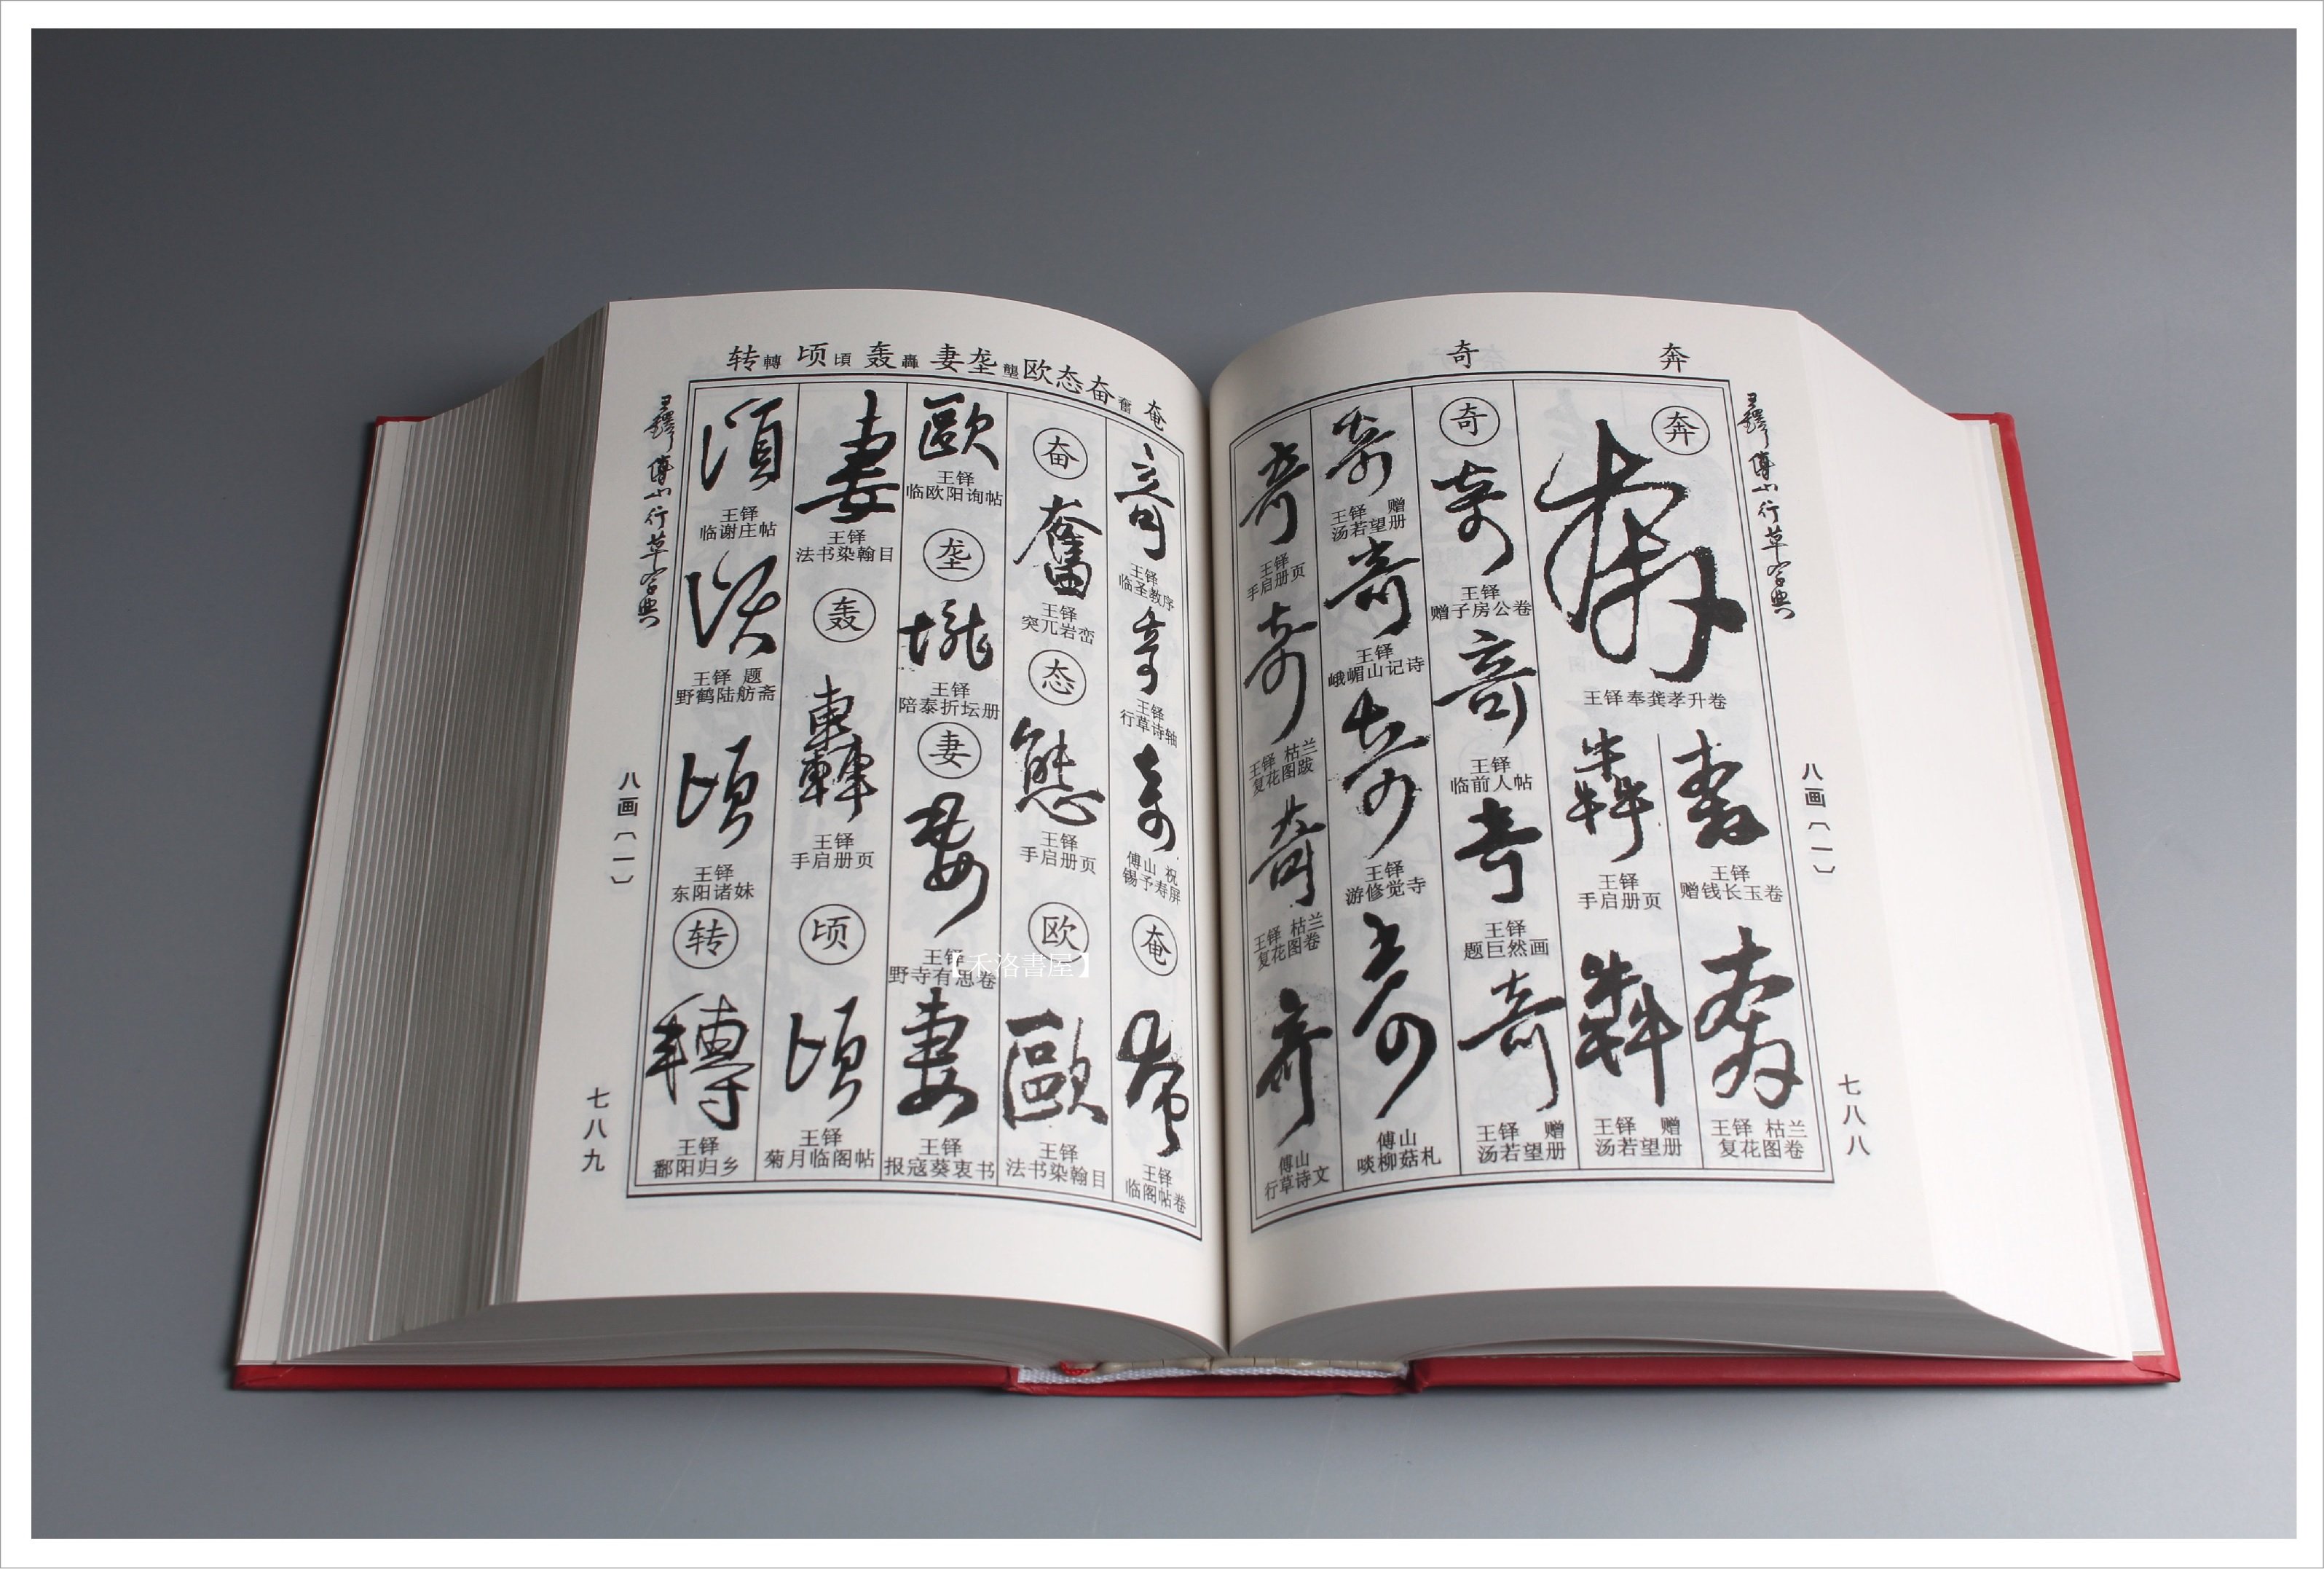 奔
奇
王鐸傅山行草字典
八画〔一〕
七八八
奔
王铎奉龚孝升卷
王铎
赠钱长玉卷
王铎 枯兰
复花图卷
王铎
手启册页
王铎 赠
汤若望册
奇
王铎
赠子房公卷
王铎
临前人帖
王铎
题巨然画
王铎 赠
汤若望册
王铎 赠
汤若望册
王铎
峨嵋山记诗
王铎
游修觉寺
傅山
啖柳菇札
王铎
手启册页
王铎 枯兰
复花图跋
王铎 枯兰
复花图卷
傅山
行草诗文
奄
奋奮
态
欧
垄壟
妻
轰轟
顷頃
转轉
王铎
临圣教序
王铎
行草诗轴
傅山 祝
锡予寿屏
奄
王铎
临阁帖卷
奋
王铎
突兀岩峦
态
王铎
手启册页
欧
王铎
法书染翰目
王铎
临欧阳询帖
垄
王铎
陪泰折坛册
妻
王铎
野寺有思卷
王铎
报寇葵衷书
王铎
法书染翰目
轰
王铎
手启册页
顷
王铎
菊月临阁帖
王铎
临谢庄帖
王铎 题
野鹤陆舫斋
王铎
东阳诸妹
转
王铎
鄱阳归乡
王鐸傅山行草字典
八画〔一〕
七八九
【禾洛書屋】